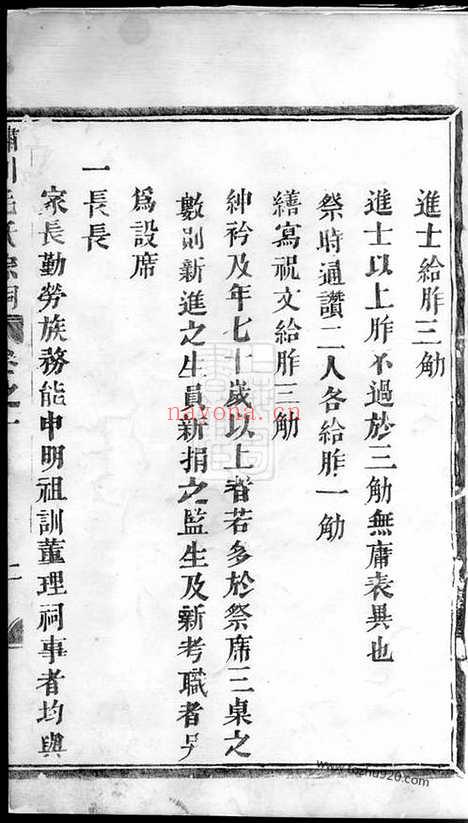 進士給胙三觔
進士以上胙不過於三觔無庸表異也
祭時通讚二人各給胙一觔
繕寫祝文給胙三觔
紳衿及年七十歲以上者若多於祭席三桌之
數則新進之生員新捐之監生及新考職者另
爲設席
一長長
家長勤勞族務能申明祖訓董理祠事者均與
川毛氏宗祠 卷之一
nayona.cn
www.fozhu920.com